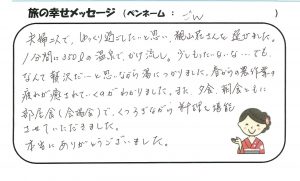 旅の幸せメッセージ（ペンネーム：ごん）
夫婦二人で、ゆっくり過ごしたいと思い、観山荘さんを選びました。
1分間に350ℓの温泉で、かけ流し。少しもったいないな…でも
なんて贅沢だ…と思いながら湯につかりました。春からの農作業の
疲れが癒されていくのがわかりました。また、夕食、朝食ともに
部屋食（会場食）で、くつろぎながら料理を堪能
させていただきました。
本当にありがとうございました。